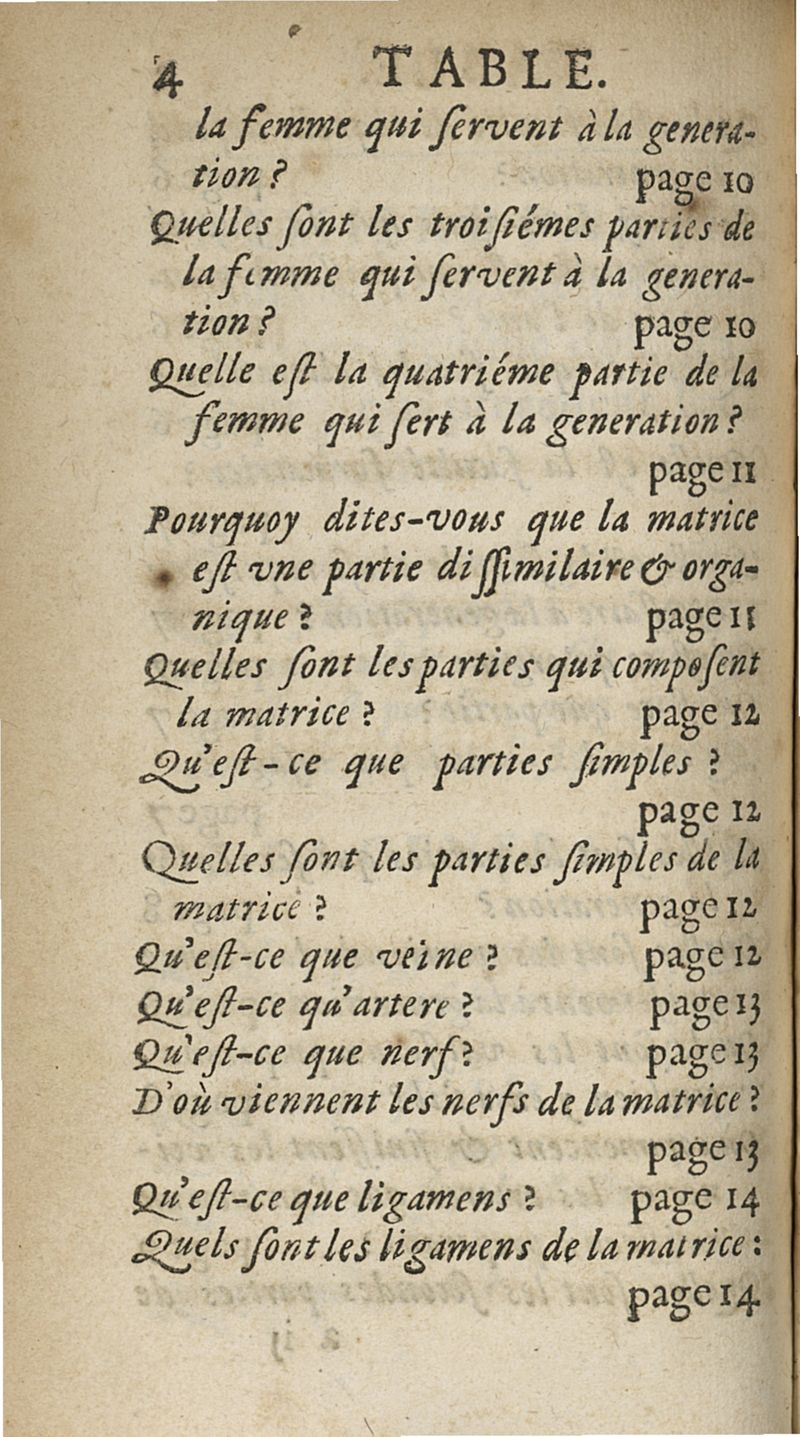 4 TABLE.
la femme qui ſervent à la genera-
tion ? page 10
Quelles ſont les troiſiémes parties de
la femme qui ſervent à la genera-
tion ? page 10
Quelle eſt la quatriéme partie de la
femme qui ſert à la generation ?
page 11
Pourquoy dites-vous que la matrice
eſt vne partie diſſimilaire & orga-
nique ? page 11
Quelles ſont les parties qui compoſent
la matrice ? page 12
Qu'eſt-ce que parties ſimples ?
page 12
Quelles ſont les parties ſimples de la
matrice ? page 12
Qu'eſt-ce que veine ? page 12
Qu'eſt-ce qu'artere ? page 13
Qu'eſt-ce que nerf ? page 13
D'où viennent les nerfs de la matrice ?
page 13
Qu'eſt-ce que ligamens ? page 14
Quels ſont les ligamens de la matrice :
page 14